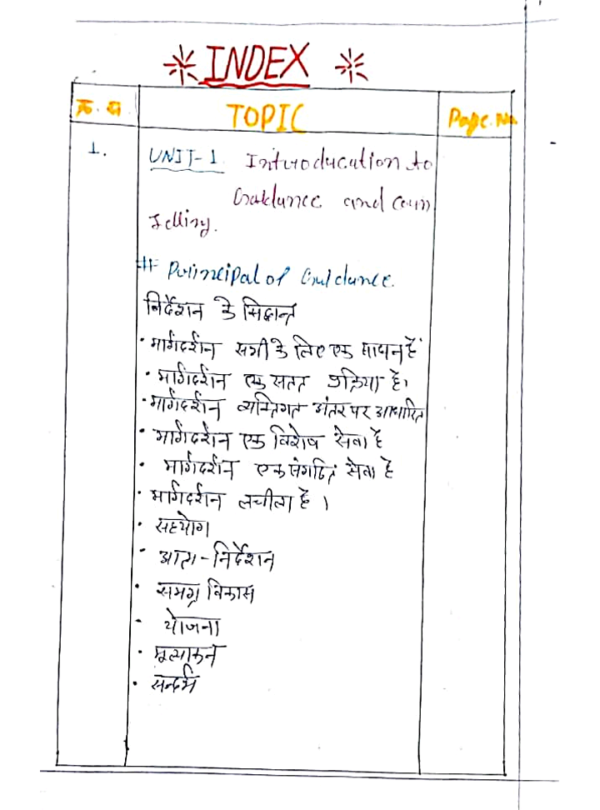 INDEX
क्र. सं TOPIC Page. No.
1. UNIT-1 Introducation to
Guidance and coun
selling.
# Principal of Guidance.
निर्देशन के सिद्धान्त
• मार्गदर्शन सभी के लिए एक साधन हैं
• मार्गदर्शन एक सतत प्रक्रिया है।
• मार्गदर्शन व्यक्तिगत अंतर पर आधारित
• मार्गदर्शन एक विशेष सेवा है
• मार्गदर्शन एक संगठित सेवा है
• मार्गदर्शन लचीला है ।
• सहयोग
• आत्म-निर्देशन
• समग्र विकास
• योजना
• मूल्यांकन
• सन्दर्भ